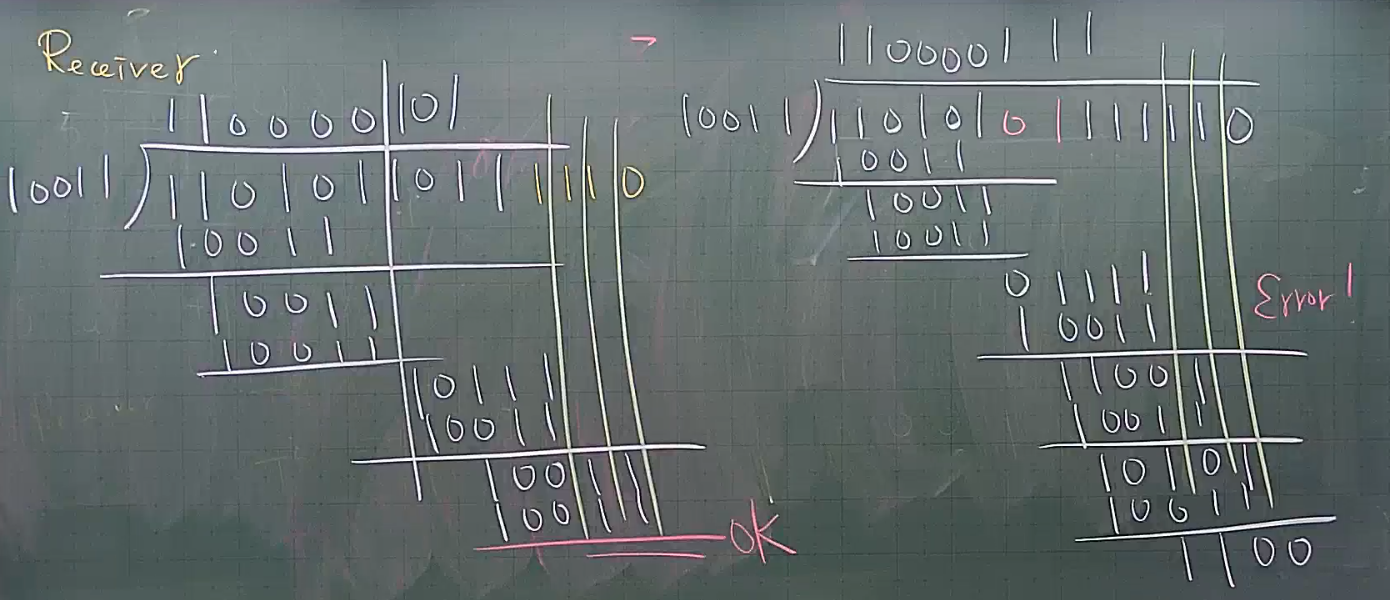 Receiver
1100001 01
10011 ) 11010110111110
10011
10011
10011
10111
10011
10011
10011
OK
110000111
10011 ) 11010101111110
10011
10011
10011
01111
10011
11001
10011
10101
10011
1100
Error!